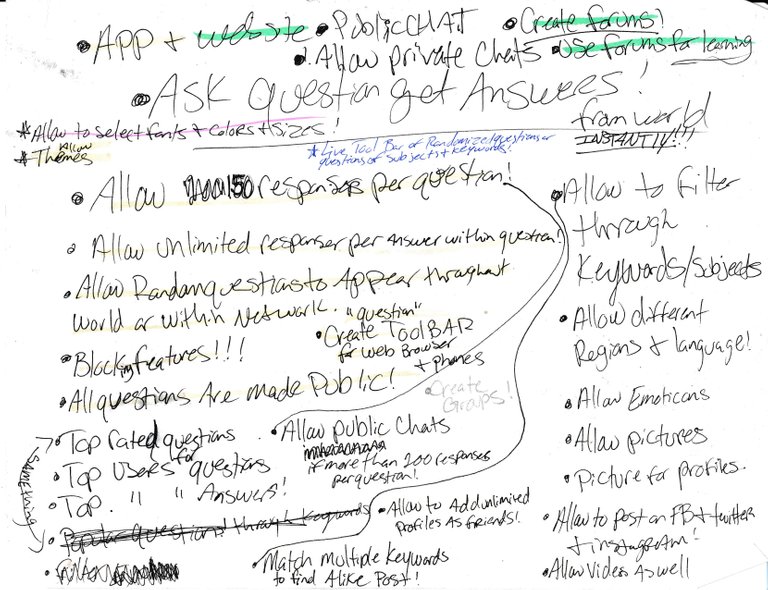 • App + website
• Public CHAT
• Create forums!
• Allow private chats
• Use forums for learning
• Ask question get Answers!
from world
INSTANTLY!!!
* Allow to select fonts & colors & sizes!
* Allow Themes
* Live Tool Bar of Randomized questions or
questions of subjects & keywords!
• Allow 150 responses per question!
• Allow unlimited responser per answer within question!
• Allow Random questions to Appear throughout
world or within Network. "question"
• Create TOOLBAR
for web Browser
+ phones
• Blocking features!!!
• All questions Are made Public!
• Create
Groups!
• Allow to filter
through
Keywords/Subjects
• Allow different
Regions & language!
• Allow Emoticons
• Allow pictures
• Picture for profiles.
• Allow to post on FB & twitter
& instagram!
• Allow Videos As well
• Top rated questions
• Top Users for questions
• Top " " Answers!
SAME THING
• Popular questions through keywords
• Allow public Chats
if more than 200 responses
per question!
• Allow to Add unlimited
Profiles As friends!
• Match multiple keywords
to find Alike Post!